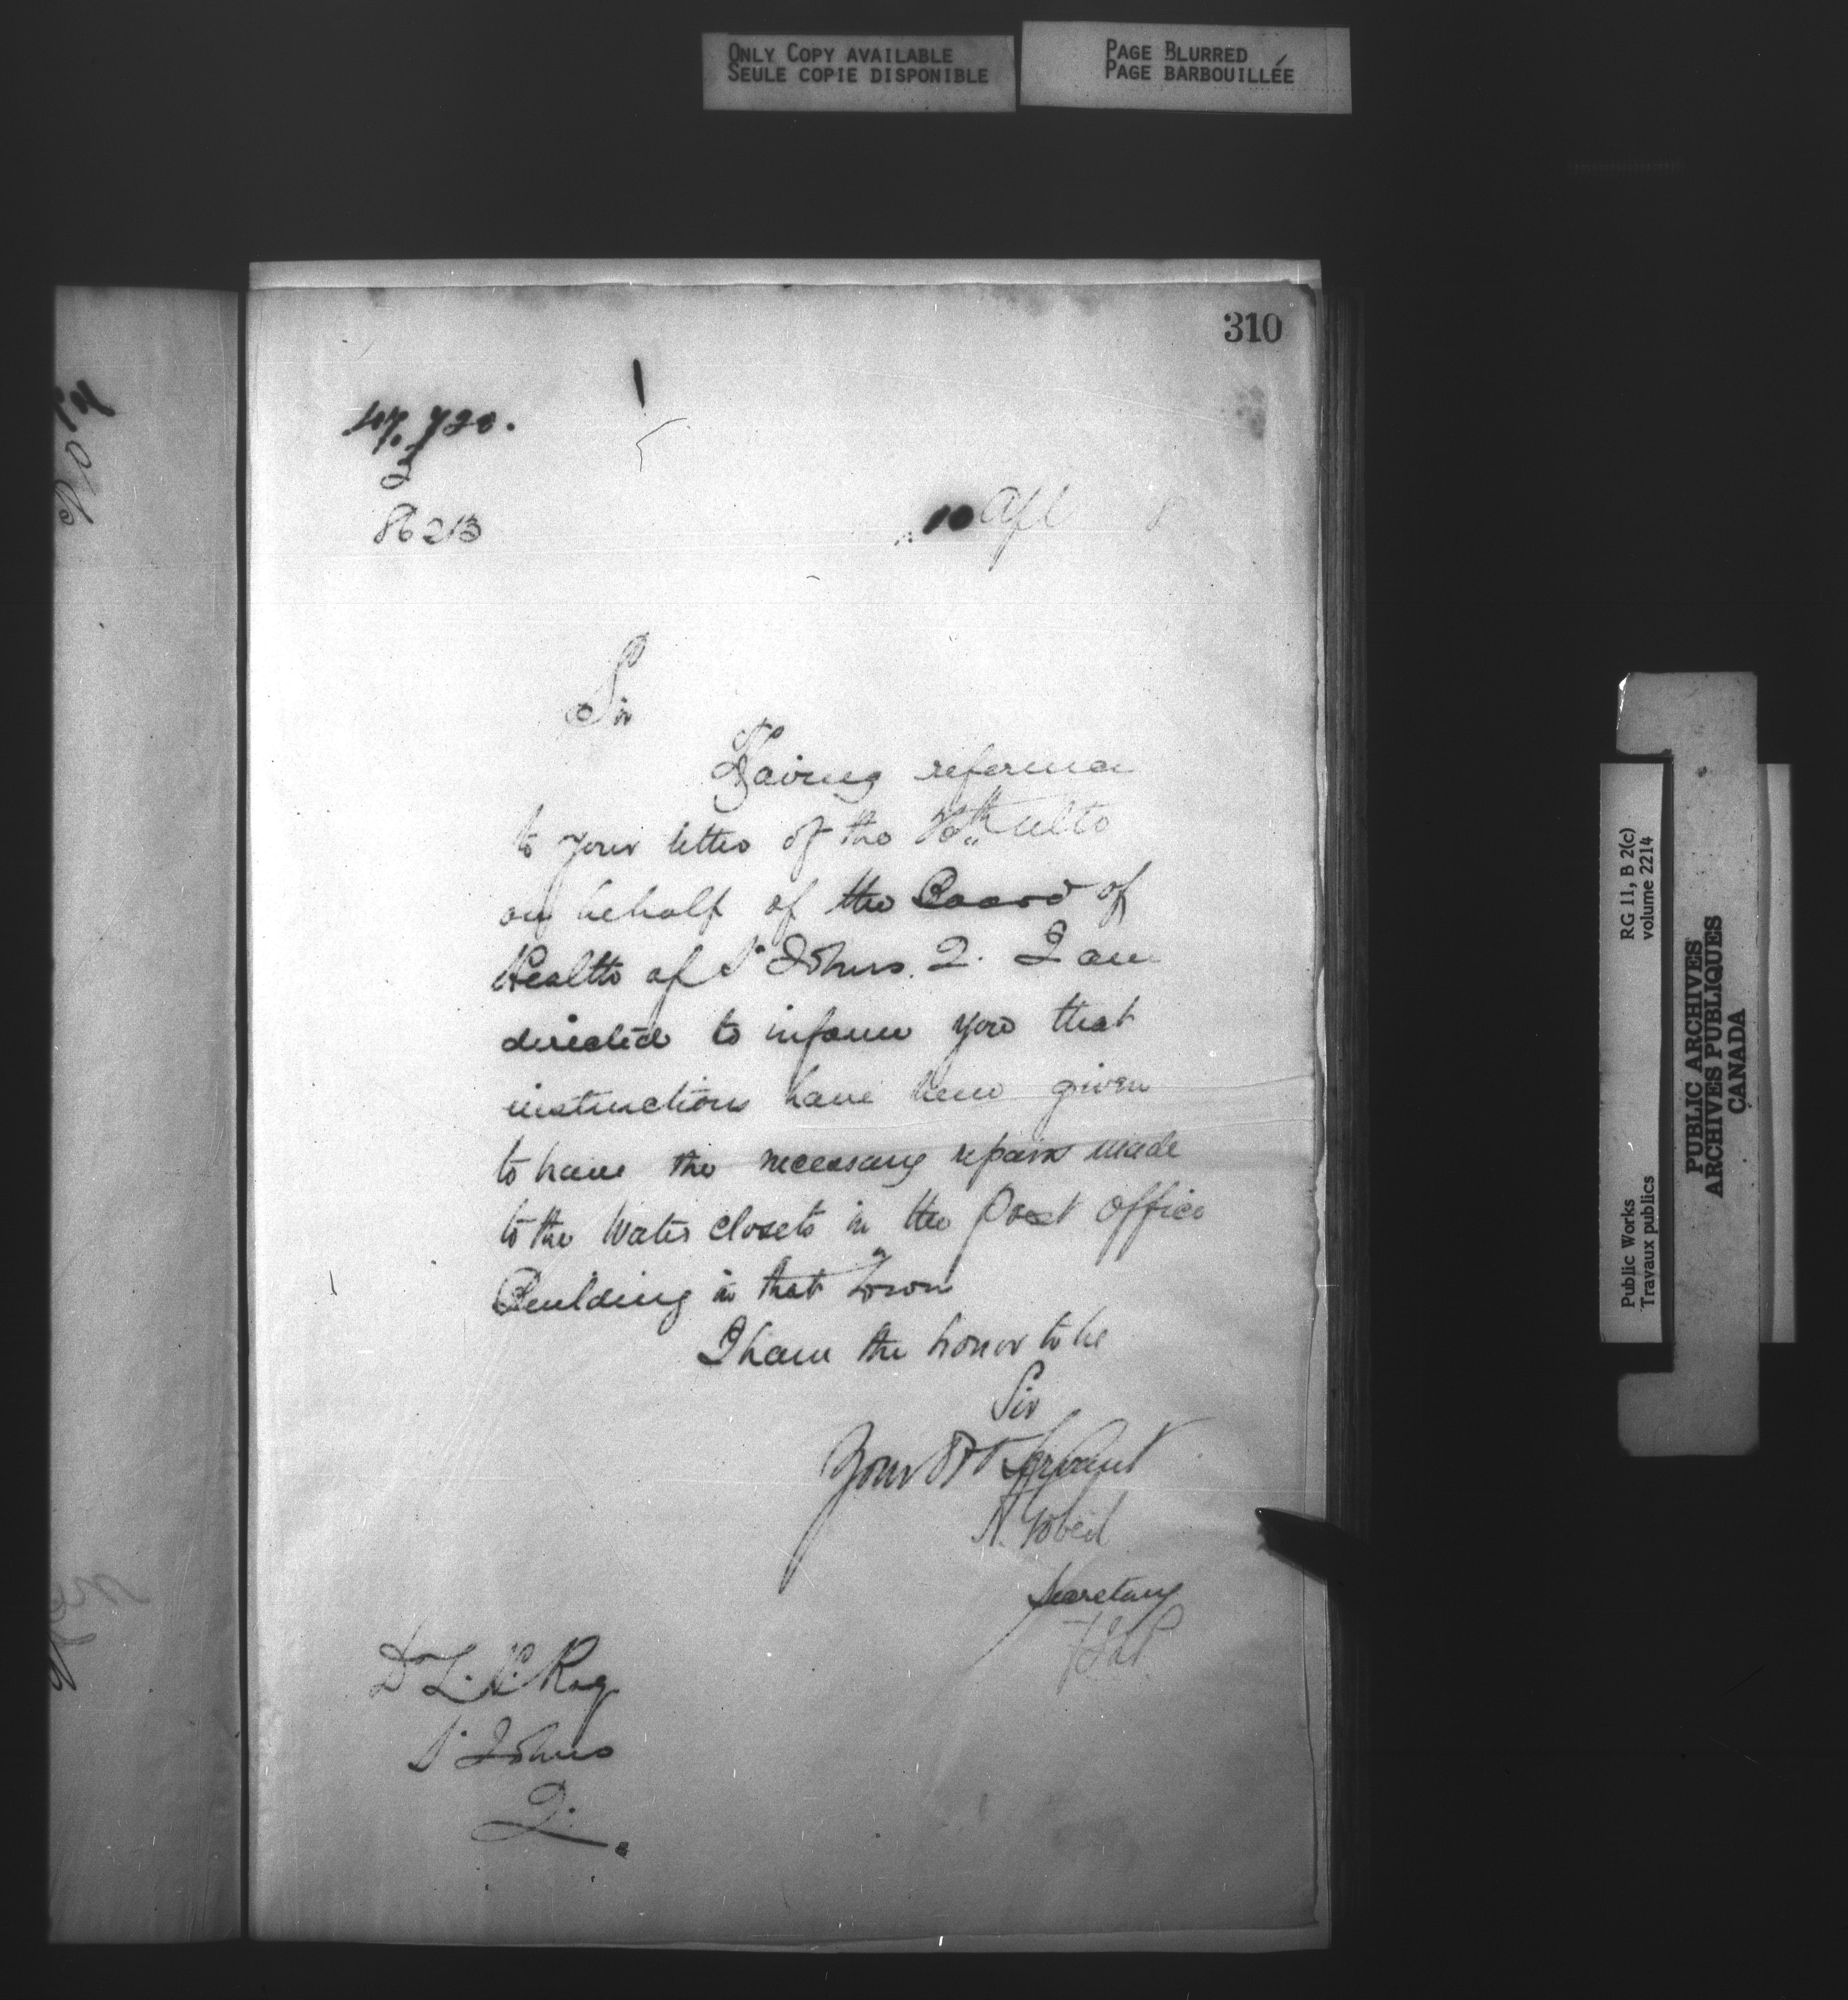 ONLY COPY AVAILABLE
SEULE COPIE DISPONIBLE
PAGE BLURRED
PAGE BARBOUILLÉE
310
47,720.
2
8623
10 Apl 8
Sir
Having reference
to your letter of the ulto
on behalf of the Board of
Health of St Johns. Q. I am
directed to inform you that
instructions have been given
to have the necessary repairs made
to the Water closets in the Post Office
Building in that Town
I have the honor to be
Sir
Your Obt Servant
A. Gobeil
Secretary
Dr L. Roy
St Johns
Q.
RG 11, B 2(c)
volume 2214
Public Works
Travaux publics
PUBLIC ARCHIVES
ARCHIVES PUBLIQUES
CANADA